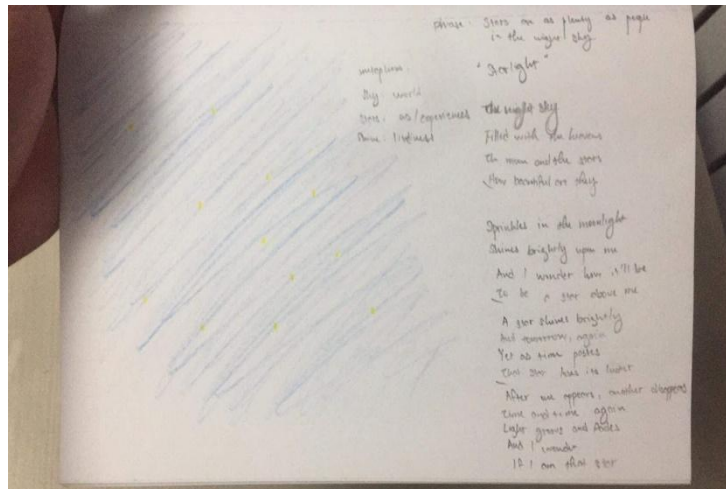 phrase: Stars are as plenty as people
in the night sky.
"Starlight"
metaphors
Sky: world
Stars: us/experiences
The night sky
Filled with the heavens
The moon and the stars
How beautiful are they
Sprinkles in the moonlight
Shines brightly upon me
And I wonder how it'll be
To be a star above me
A star shines brightly
And tomorrow, again
Yet as time passes
That star loses its luster
After one appears, another disappears
Time and time again
Light grows and fades
And I wonder
If I am that star